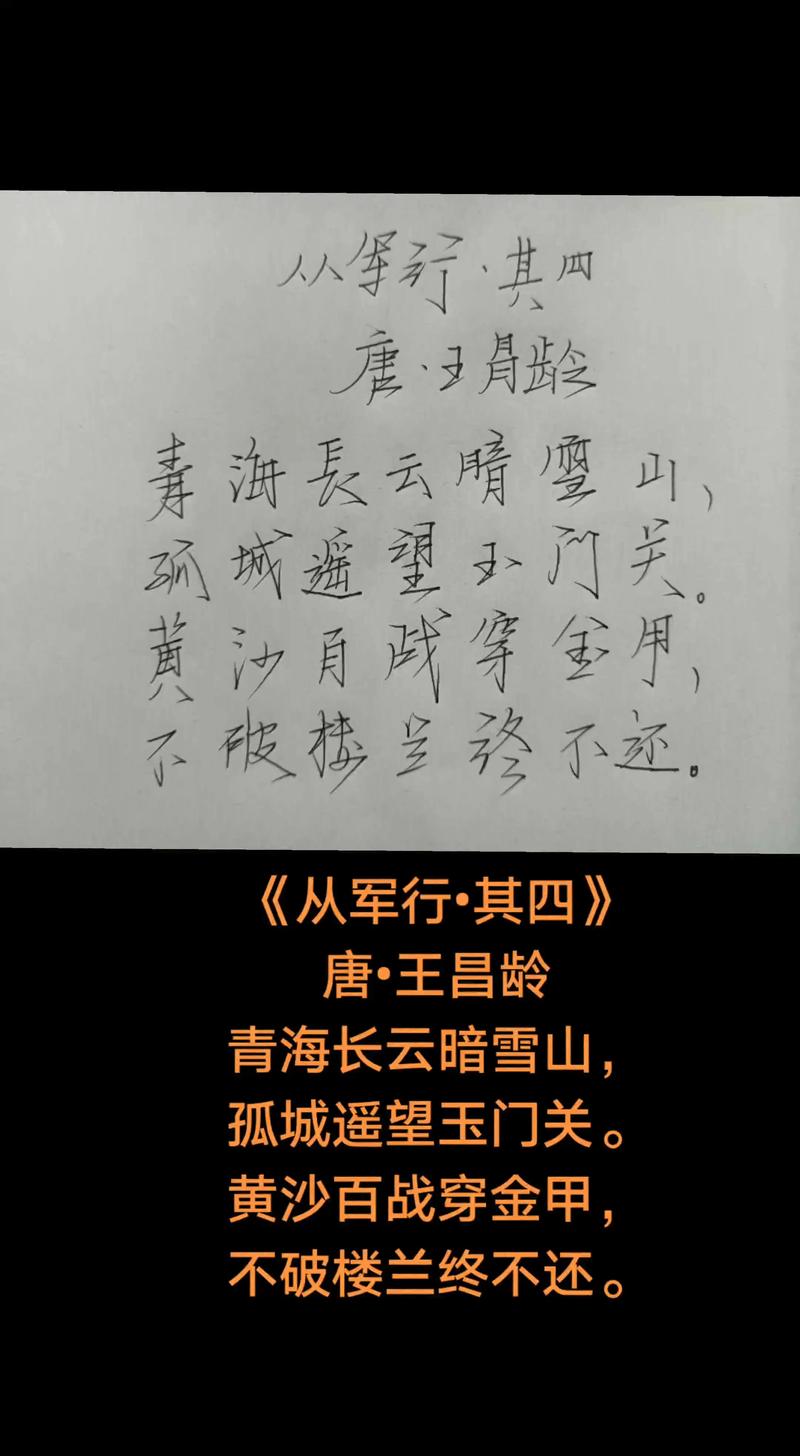 从军行·其四
唐·王昌龄
青海長云暗雪山，
孤城遥望玉门关。
黄沙百战穿金甲，
不破楼兰终不还。
《从军行•其四》
唐•王昌龄
青海长云暗雪山，
孤城遥望玉门关。
黄沙百战穿金甲，
不破楼兰终不还。